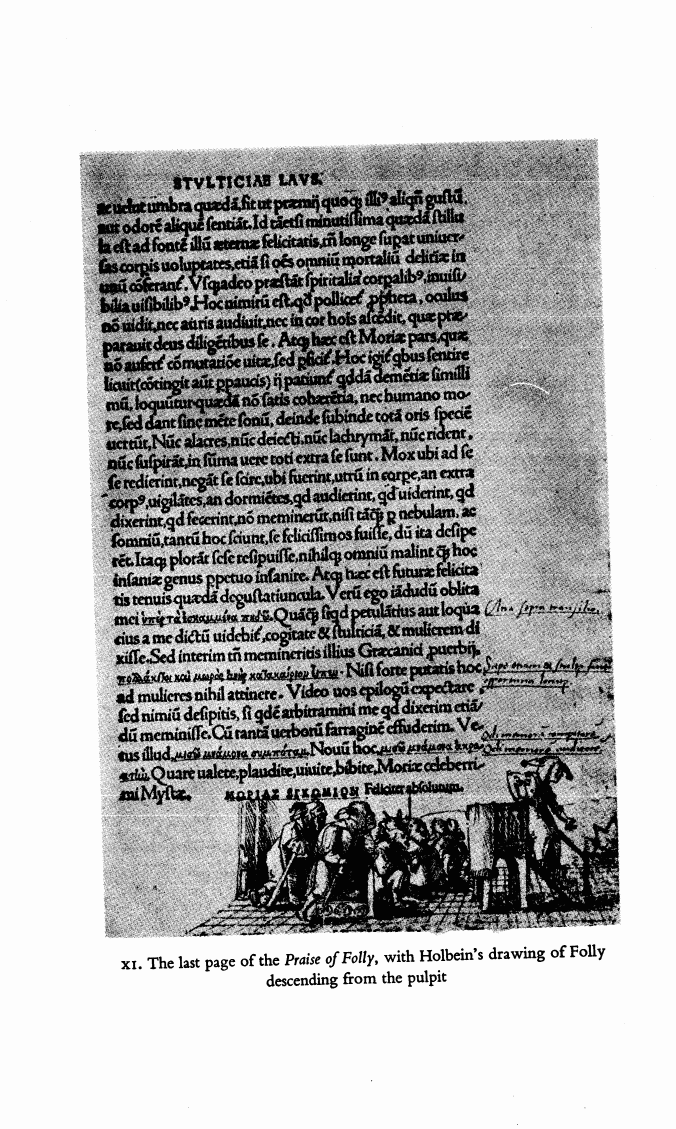 STVLTICIAE LAVS.
ac uelut umbra quædā, fit ut præmij quoqꝫ illiꝰ aliqñ gustū,
aut odorē aliquē sentiāt. Id tāetsi minutissima quædā stillu
la est ad fontē illū æternæ felicitatis, tñ longe supat uniuer-
sas corpis uoluptates, etiā si oēs omniū mortaliū delitiæ in
unū cōferant̃. Vsqꝫadeo præstāt spiritalia corpalibꝰ, inuisi-
bilia uisibilibꝰ. Hoc nimirū est, qd pollicet̃ ꝓpheta, oculus
nō uidit, nec auris audiuit, nec in cor hois ascēdit, quæ præ-
parauit deus diligētibus se. Atqꝫ hæc est Moriæ pars, quæ
nō aufert̃ cōmutatiōe uitæ, sed ꝑficit̃. Hoc igit̃ qbus sentire
licuit (cōtingit aūt ppaucis) ij patiunt̃ qddā demētiæ simili
mū, loquūtur quædā nō satis cohærētia, nec humano mo-
re, sed dant sine mēte sonū, deinde subinde totā oris speciē
uertūt. Nūc alacres, nūc deiecti, nūc lachrymāt, nūc rident,
nūc suspirāt, in sūma uere toti extra se sunt. Mox ubi ad se
se redierint, negāt se scire, ubi fuerint, utrū in corpe, an extra
corpꝰ, uigilātes, an dormiētes, qd audierint, qd uiderint, qd
dixerint, qd fecerint, nō meminerūt, nisi tāqꝫ ꝑ nebulam, ac
somniū, tantū hoc sciunt, se felicissimos fuisse, dū ita desipe
rēt. Itaqꝫ plorāt sese resipuisse, nihilqꝫ omniū malint qꝫ hoc
insaniæ genus ꝑpetuo insanire. Atqꝫ hæc est futuræ felicita
tis tenuis quædā degustatiuncula. Verū ego iādudū oblita
mei ὑπὲρ τὰ ἐσκαμμένα πηδῶ. Quāqꝫ siqd petulātius aut loqua
cius a me dictū uidebit̃, cogitate & stulticiā, & mulierem di
xisse. Sed interim tñ memineritis illius Græcanici ꝓuerbij,
πολλάκι τοι καὶ μωρὸς ἀνὴρ κατακαίριον εἶπεν. Nisi forte putatis hoc
ad mulieres nihil attinere. Video uos epilogū expectare,
sed nimiū desipitis, si qdē arbitramini me qd dixerim etiā-
dū meminisse. Cū tantā uerborū farraginē effuderim. Ve-
tus illud, μισῶ μνάμονα συμπόταν. Nouū hoc, μισῶ μνάμονα ἀκρο-
ατήν. Quare ualete, plaudite, uiuite, bibite, Moriæ celeberri-
mi Mystæ.
ΜΩΡΙΑΣ ΕΓΚΩΜΙΟΝ Feliciter absolutum.
XI. The last page of the Praise of Folly, with Holbein's drawing of Folly
descending from the pulpit